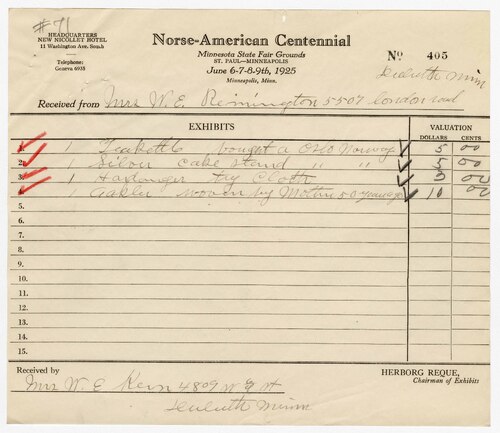 #71
HEADQUARTERS
NEW NICOLLET HOTEL
11 Washington Ave. South
Telephone:
Geneva 6035
Norse-American Centennial
Minnesota State Fair Grounds
ST. PAUL—MINNEAPOLIS
June 6-7-8-9th, 1925
Minneapolis, Minn.
No 405
Duluth Minn
Received from Mrs W. E. Remington 5507 London road
EXHIBITS
VALUATION
DOLLARS CENTS
1. 1 Teakettle bought a Oslo Norway 5 00
2. 1 Silver cake stand " " 5 00
3. 1 Hardanger tay Cloth 3 00
4. 1 woven by Mother 50 years ago 10 00
5.
6.
7.
8.
9.
10.
11.
12.
13.
14.
15.
Received by
HERBORG REQUE,
Chairman of Exhibits
Mrs W. E Kern 4809 W St
Duluth Minn